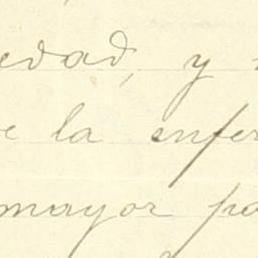 edad, y
e la enfer
mayor pa